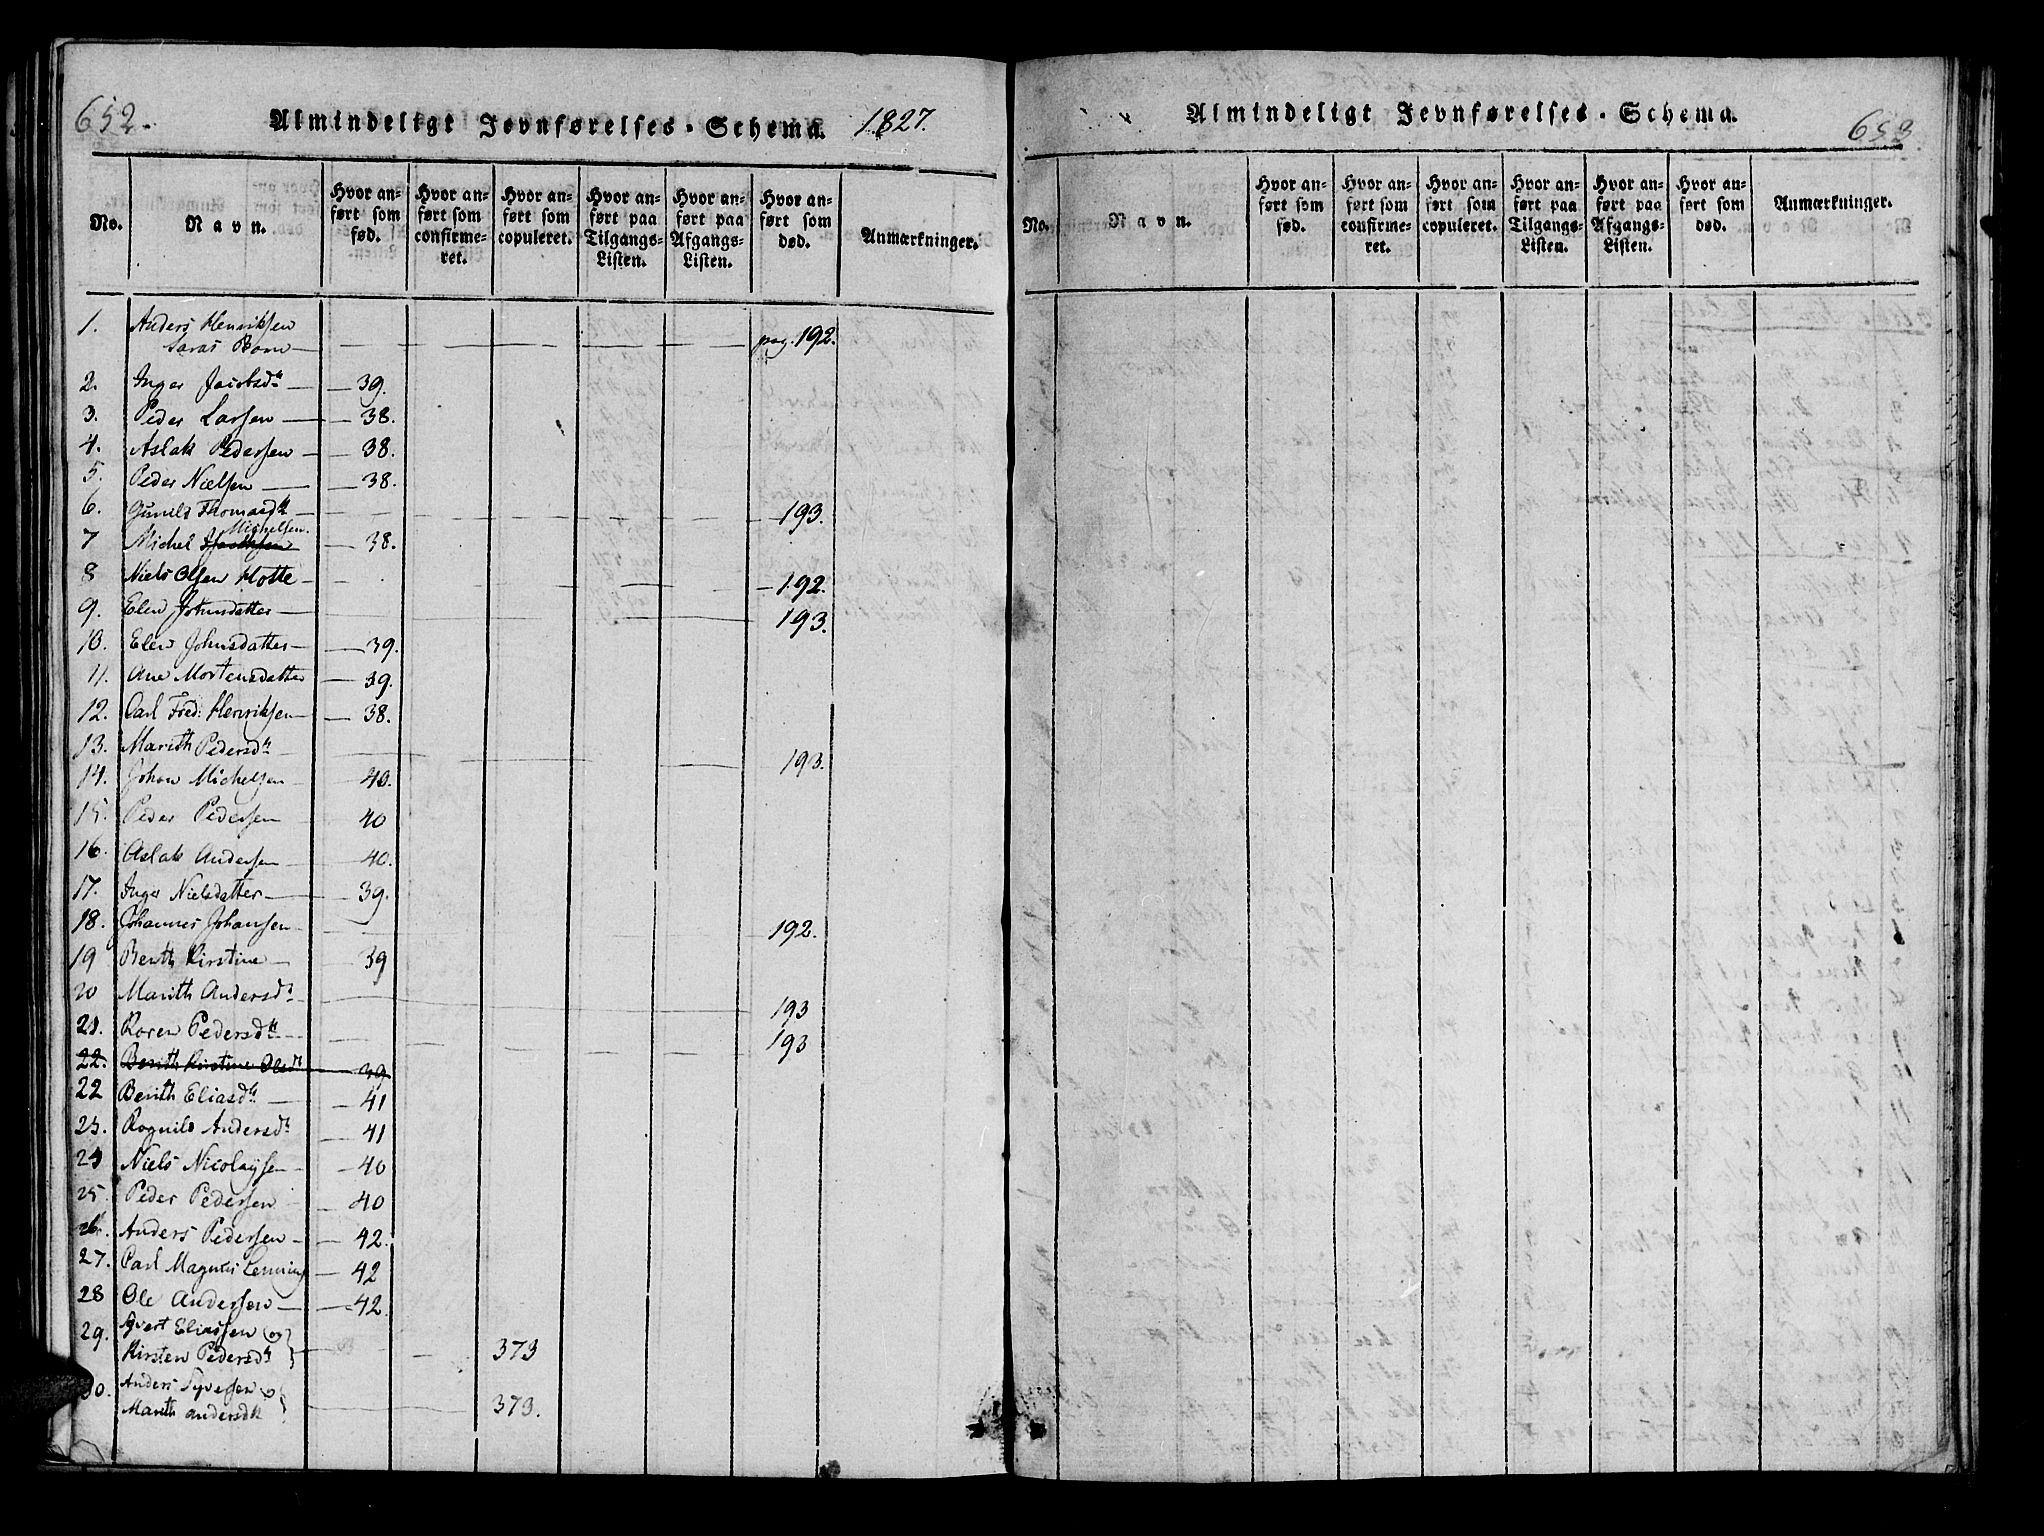 652.
Almindeligt Jevnførelses-Schema. 1827.
No.
Navn.
Hvor anført som fød.
Hvor anført som confirmeret.
Hvor anført som copuleret.
Hvor anført paa Tilgangs-Listen.
Hvor anført paa Afgangs-Listen.
Hvor anført som død.
Anmærkninger.
1. Anders Henriksen
Saras Barn — pag. 192.
2. Inger Jacobsdtr — 39.
3. Peder Larsen — 38.
4. Aslak Pedersen — 38.
5. Peder Nielsen — 38.
6. Gunild Thomasdtr — 193.
Michelsen
7 Michel — 38.
8 Niels Olsen Hotte — 192.
9. Elen Johnsdatter — 193.
10. Elen Johnsdatter — 39.
11. Ane Mortensdatter — 39.
12. Carl Fred: Henriksen — 38.
13. Marith Pedersdtr — 193.
14. Johan Michelsen — 40.
15. Peder Pedersen 40
16. Aslak Andersen — 40.
17. Inger Nielsdatter — 39.
18. Johannes Johansen — 192.
19 Berith Kirstine — 39
20 Marith Andersdtr — 193
21. Karen Pedersdtr — 193
22. Berith Kirstine Olsdtr 39
22 Berith Eliasdtr — 41
23. Ragnild Andersdtr — 41
24 Niels Nicolaysen — 40
25. Peder Pedersen — 40
26. Anders Pedersen — 42.
27. Carl Magnus — 42
28 Ole Andersen — 42.
29. Eliassen og
Kirsten Pedersdtr } 373
30. Anders
Marith Andersdtr } 373.
Almindeligt Jevnførelses-Schema.
653
No.
Navn.
Hvor anført som fød.
Hvor anført som confirmeret.
Hvor anført som copuleret.
Hvor anført paa Tilgangs-Listen.
Hvor anført paa Afgangs-Listen.
Hvor anført som død.
Anmærkninger.